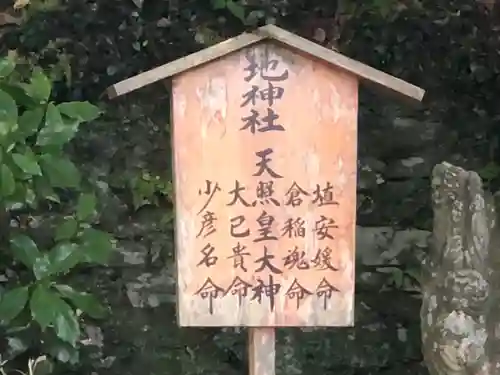 地神社
埴安媛命
倉稲魂命
天照皇大神
大已貴命
少彦名命